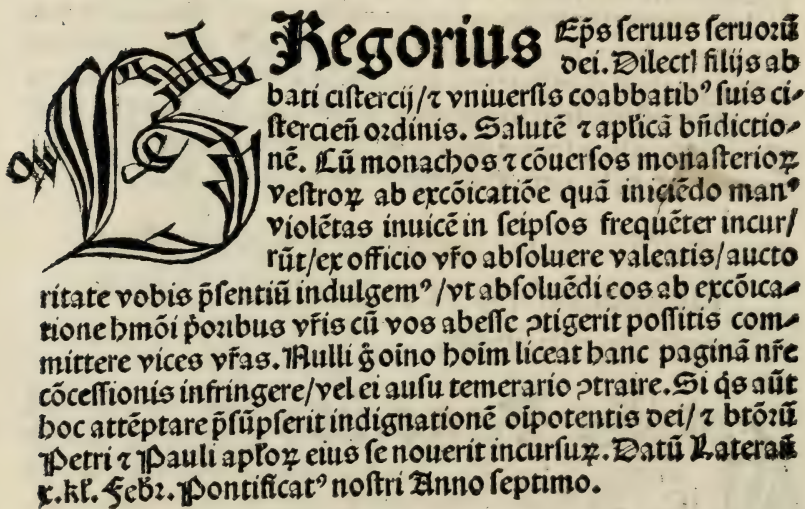 GRegorius Ep̃s ſeruus ſeruoꝛũ
dei. Dilecti filijs ab
bati ciſtercij/⁊ vniuerſis coabbatib⁹ ſuis ci⸗
ſtercieñ oꝛdinis. Salutẽ ⁊ apl̃icã bñdictio⸗
nẽ. Cũ monachos ⁊ cõuerſos monaſterioꝝ
veſtroꝝ ab excõicatiõe quã iniciẽdo man⁹
violẽtas inuicẽ in ſeipſos frequẽter incur/
rũt/ex officio vr̃o abſoluere valeatis/aucto
ritate vobis p̃ſentiũ indulgem⁹/vt abſoluẽdi eos ab excõica⸗
tione hmõi p̃oꝛibus vr̃is cũ vos abeſſe ꝯtigerit poſſitis com⸗
mittere vices vr̃as. Nulli g̃ oĩno hoĩm liceat hanc paginã nr̃e
cõceſſionis infringere/vel ei auſu temerario ꝯtraire. Si q̃s aũt
hoc attẽptare p̃ſũpſerit indignationẽ oĩpotentis dei/⁊ btõꝛũ
Petri ⁊ Pauli apl̃oꝝ eius ſe nouerit incurſuꝝ. Datũ Laterañ
x. kl̃. Feb̃ꝛ. Pontificat⁹ noſtri Anno ſeptimo.